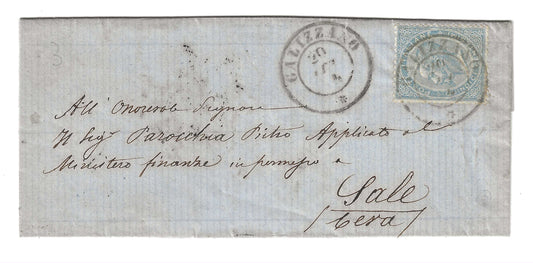 CALIZZANO
20
All' Onorevole Signore
Il Sigr Parocchia Pietro Applicato al
Ministero finanze in permesso a
Sale
(Ceva)